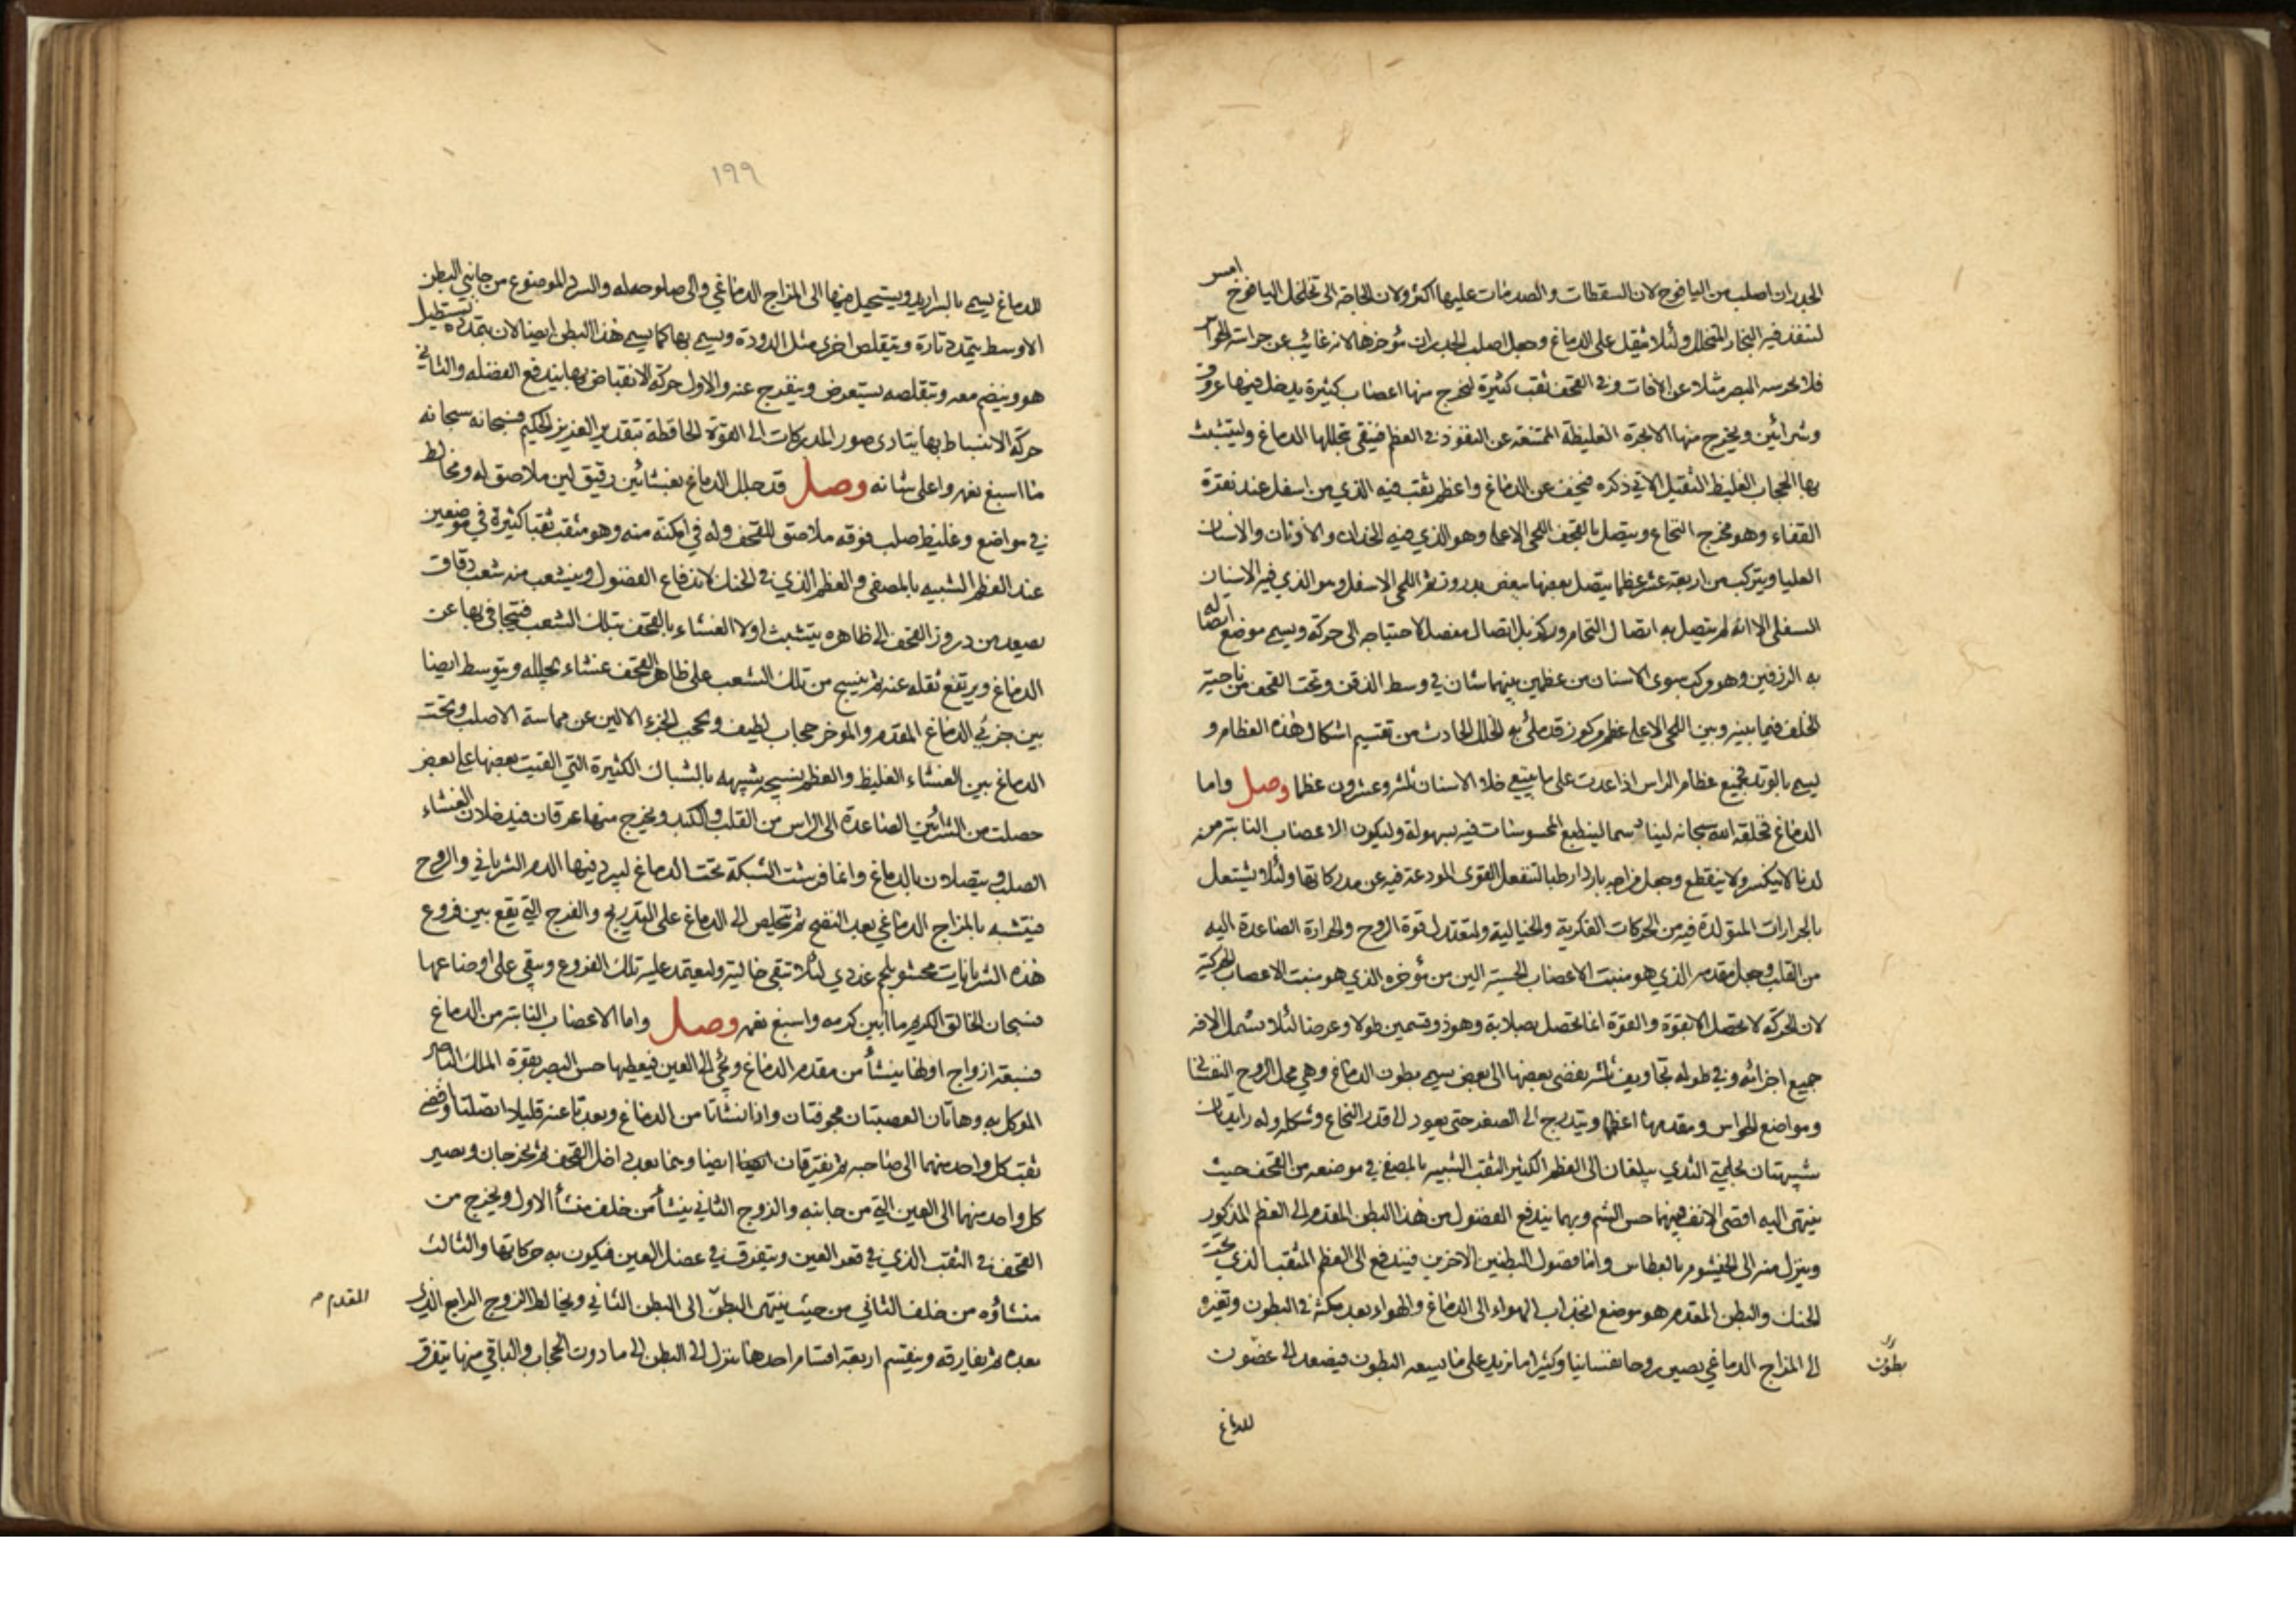 الجدران اصلب من اليافوخ لان السقطات والصدمات عليها اكثر ولان الحاجة الى تخلخل اليافوخ امس
لتنفذ فيه البخار المتحلل ولئلا يثقل على الدماغ وجعل اصلب الجدران مؤخرها لانه غائب عن حراسة الحواس
فلا يحرسه البصر مثلا عن الافات وفي القحف ثقب كثيرة لتخرج منها اعصاب كثيرة يدخل فيها عروق
وشرائين ويخرج منها الابخرة الغليظة الممتنعة عن النفوذ في العظم فينقى بتحللها الدماغ وليتشبث
بها الحجاب الغليظ الثقيل الاتي ذكره فيخف عن الدماغ واعظم ثقب فيه الذي من اسفل عند نقرة
القفاء وهو مخرج النخاع ويتصل بالقحف اللحي الاعلى وهو الذي فيه الخدان والاذنان والاسنان
العليا ويتركب من اربعة عشر عظما يتصل بعضها ببعض بدروز ثم اللحي الاسفل وهو الذي فيه الاسنان
السفلى الا انه لم يتصل به اتصال التحام وركز بل اتصال مفصل لاحتياجه الى حركة ويسمى موضع اتصاله
به الزرفين وهو مركب سوى الاسنان من عظمين بينهما شان في وسط الذقن وتحت القحف من ناحية
الخلف فيما بينه وبين اللحي الاعلى عظم مركوز قد ملئ به الخلل الحادث من تقسيم اشكال هذه العظام و
يسمى بالوتد فجميع عظام الراس اذا عدت على ما ينبغي خلا الاسنان ثلثة وعشرون عظما وصل واما
الدماغ فخلقه الله سبحانه لينا دسما لينطبع المحسوسات فيه بسهولة وليكون الاعصاب النابتة منه
لدنا لا ينكسر ولا ينقطع وجعل مزاجه باردا رطبا لتنفعل القوى المودعة فيه عن مدركاتها ولئلا يشتعل
بالحرارات المتولدة فيه من الحركات الفكرية والخيالية ولتعتدل قوة الروح والحرارة الصاعدة اليه
من القلب وجعل مقدمه الذي هو منبت الاعصاب الحسية الين من مؤخره الذي هو منبت الاعصاب الحركية
لان الحركة لا تحصل الا بقوة والقوة انما تحصل بصلابة وهو ذو قسمين طولا وعرضا لئلا تشمل الافة
جميع اجزائه وفي طوله تجاويف ثلثة يفضي بعضها الى بعض يسمى بطون الدماغ وهي محل الروح النفساني
ومواضع الحواس ومقدمها اعظمها ويتدرج الى الصغر حتى يعود الى قدر النخاع وشكله وله زايدتان
شبيهتان بحلمتي الثدي يبلغان الى العظم الكثير الثقب الشبيه بالمصفى في موضعه من القحف حيث
ينتهي اليه اقصى الانف فيهما حس الشم وبهما يندفع الفضول من هذا البطن المقدم الى العظم المذكور
وينزل منه الى الخيشوم بالعطاس واما فضول البطنين الاخرين فيندفع الى العظم المثقب الذي تحت
الحنك والبطن المقدم هو موضع انجذاب الهواء الى الدماغ والهواء بعد مكثه في البطون وتغيره
الى المزاج الدماغي يصير روحا نفسانيا وكثيرا ما يزيد على ما يسعه البطون فيصعد الى غضون
بطون
للدماغ
١٩٩
للدماغ يسمى بالبراريد ويستحيل فيها الى المزاج الدماغي والى صلوحه له والسرد الموضوع من جانبي البطن
الاوسط يتمدد تارة ويتقلص اخرى مثل الدودة ويسمى بها كما يسمى هذا البطن ايضا لان بتمدده يستطيل
هو وينضم معه وبتقلصه يستعرض وينفرج عنه والاول حركة الانقباض بها يندفع الفضلة والثاني
حركة الانبساط بها يتادى صور المدركات الى القوة الحافظة بتقدير العزيز الحكيم فسبحانه سبحانه
ما اسبغ نعمه واعلى شانه وصل قد جلل الدماغ بغشائين رقيق لين ملاصق له ومخالط
في مواضع وغليظ صلب فوقه ملاصق للقحف وله في امكنة منه وهو مثقب ثقبا كثيرة في موضعين
عند العظم الشبيه بالمصفى والعظم الذي في الحنك لاندفاع الفضول وينشعب منه شعب دقاق
يصعد من دروز القحف الى ظاهره يتشبث اولا الغشاء بالقحف بتلك الشعب فيتجافى بها عن
الدماغ ويرتفع ثقله عنه ثم ينسج من تلك الشعب على ظاهر القحف غشاء يجلله ويتوسط ايضا
بين جزئي الدماغ المقدم والموخر حجاب لطيف ويحجب الجزء الالين عن مماسة الاصلب وتحت
الدماغ بين الغشاء الغليظ والعظم نسيجة شبيهة بالشباك الكثيرة التي القيت بعضها على بعض
حصلت من الشرائين الصاعدة الى الراس من القلب والكبد ويخرج منها عرقان فيدخلان الغشاء
الصلب ويتصلان بالدماغ وانما فرشت الشبكة تحت الدماغ ليبرد فيها الدم الشرياني والروح
فيتشبه بالمزاج الدماغي بعد النضج ثم يتخلص الى الدماغ على التدريج والفرج التي تقع بين فروع
هذه الشريانات محشو بلحم غددي لئلا تبقى خالية وليعتمد عليه تلك الفروع ويبقى على اوضاعها
فسبحان الخالق الكريم ما ابين كرمه واسبغ نعمه وصل واما الاعصاب النابتة من الدماغ
فسبعة ازواج اولها ينشأ من مقدم الدماغ ويجئ الى العين فيعطيها حس البصر بقوة الملك الباصر
الموكل به وهاتان العصبتان مجوفتان واذا نشأتا من الدماغ وبعدتا عنه قليلا اتصلتا وافضى
ثقب كل واحد منهما الى صاحبه ثم يفترقان ايضا وهما بعد داخل القحف ثم يخرجان ويصير
كل واحد منهما الى العين التي من جانبه والزوج الثاني ينشأ من خلف منشأ الاول ويخرج من
القحف في الثقب الذي في قعر العين ويتفرق في عضل العين فيكون به حركاتها والثالث
منشاؤه من خلف الثاني من حيث ينتهي البطن الى البطن الثاني ويخالط الزوج الرابع الذي
المقدم
بعده ثم يفارقه وينقسم اربعة اقسام احدها ينزل الى البطن الى ما دون الحجاب والباقي منها يتفرق